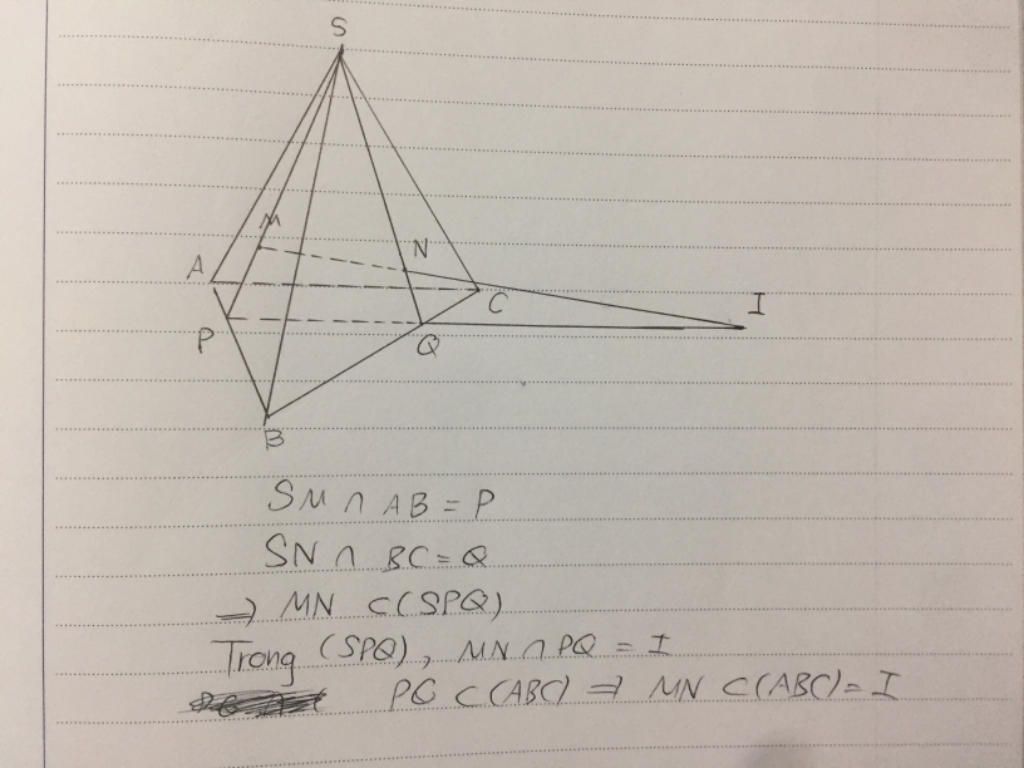 S
M
N
A
C
I
P
Q
B
SM ∩ AB = P
SN ∩ BC = Q
=> MN ⊂ (SPQ)
Trong (SPQ), MN ∩ PQ = I
PQ ⊂ (ABC) => MN ⊂ (ABC) = I